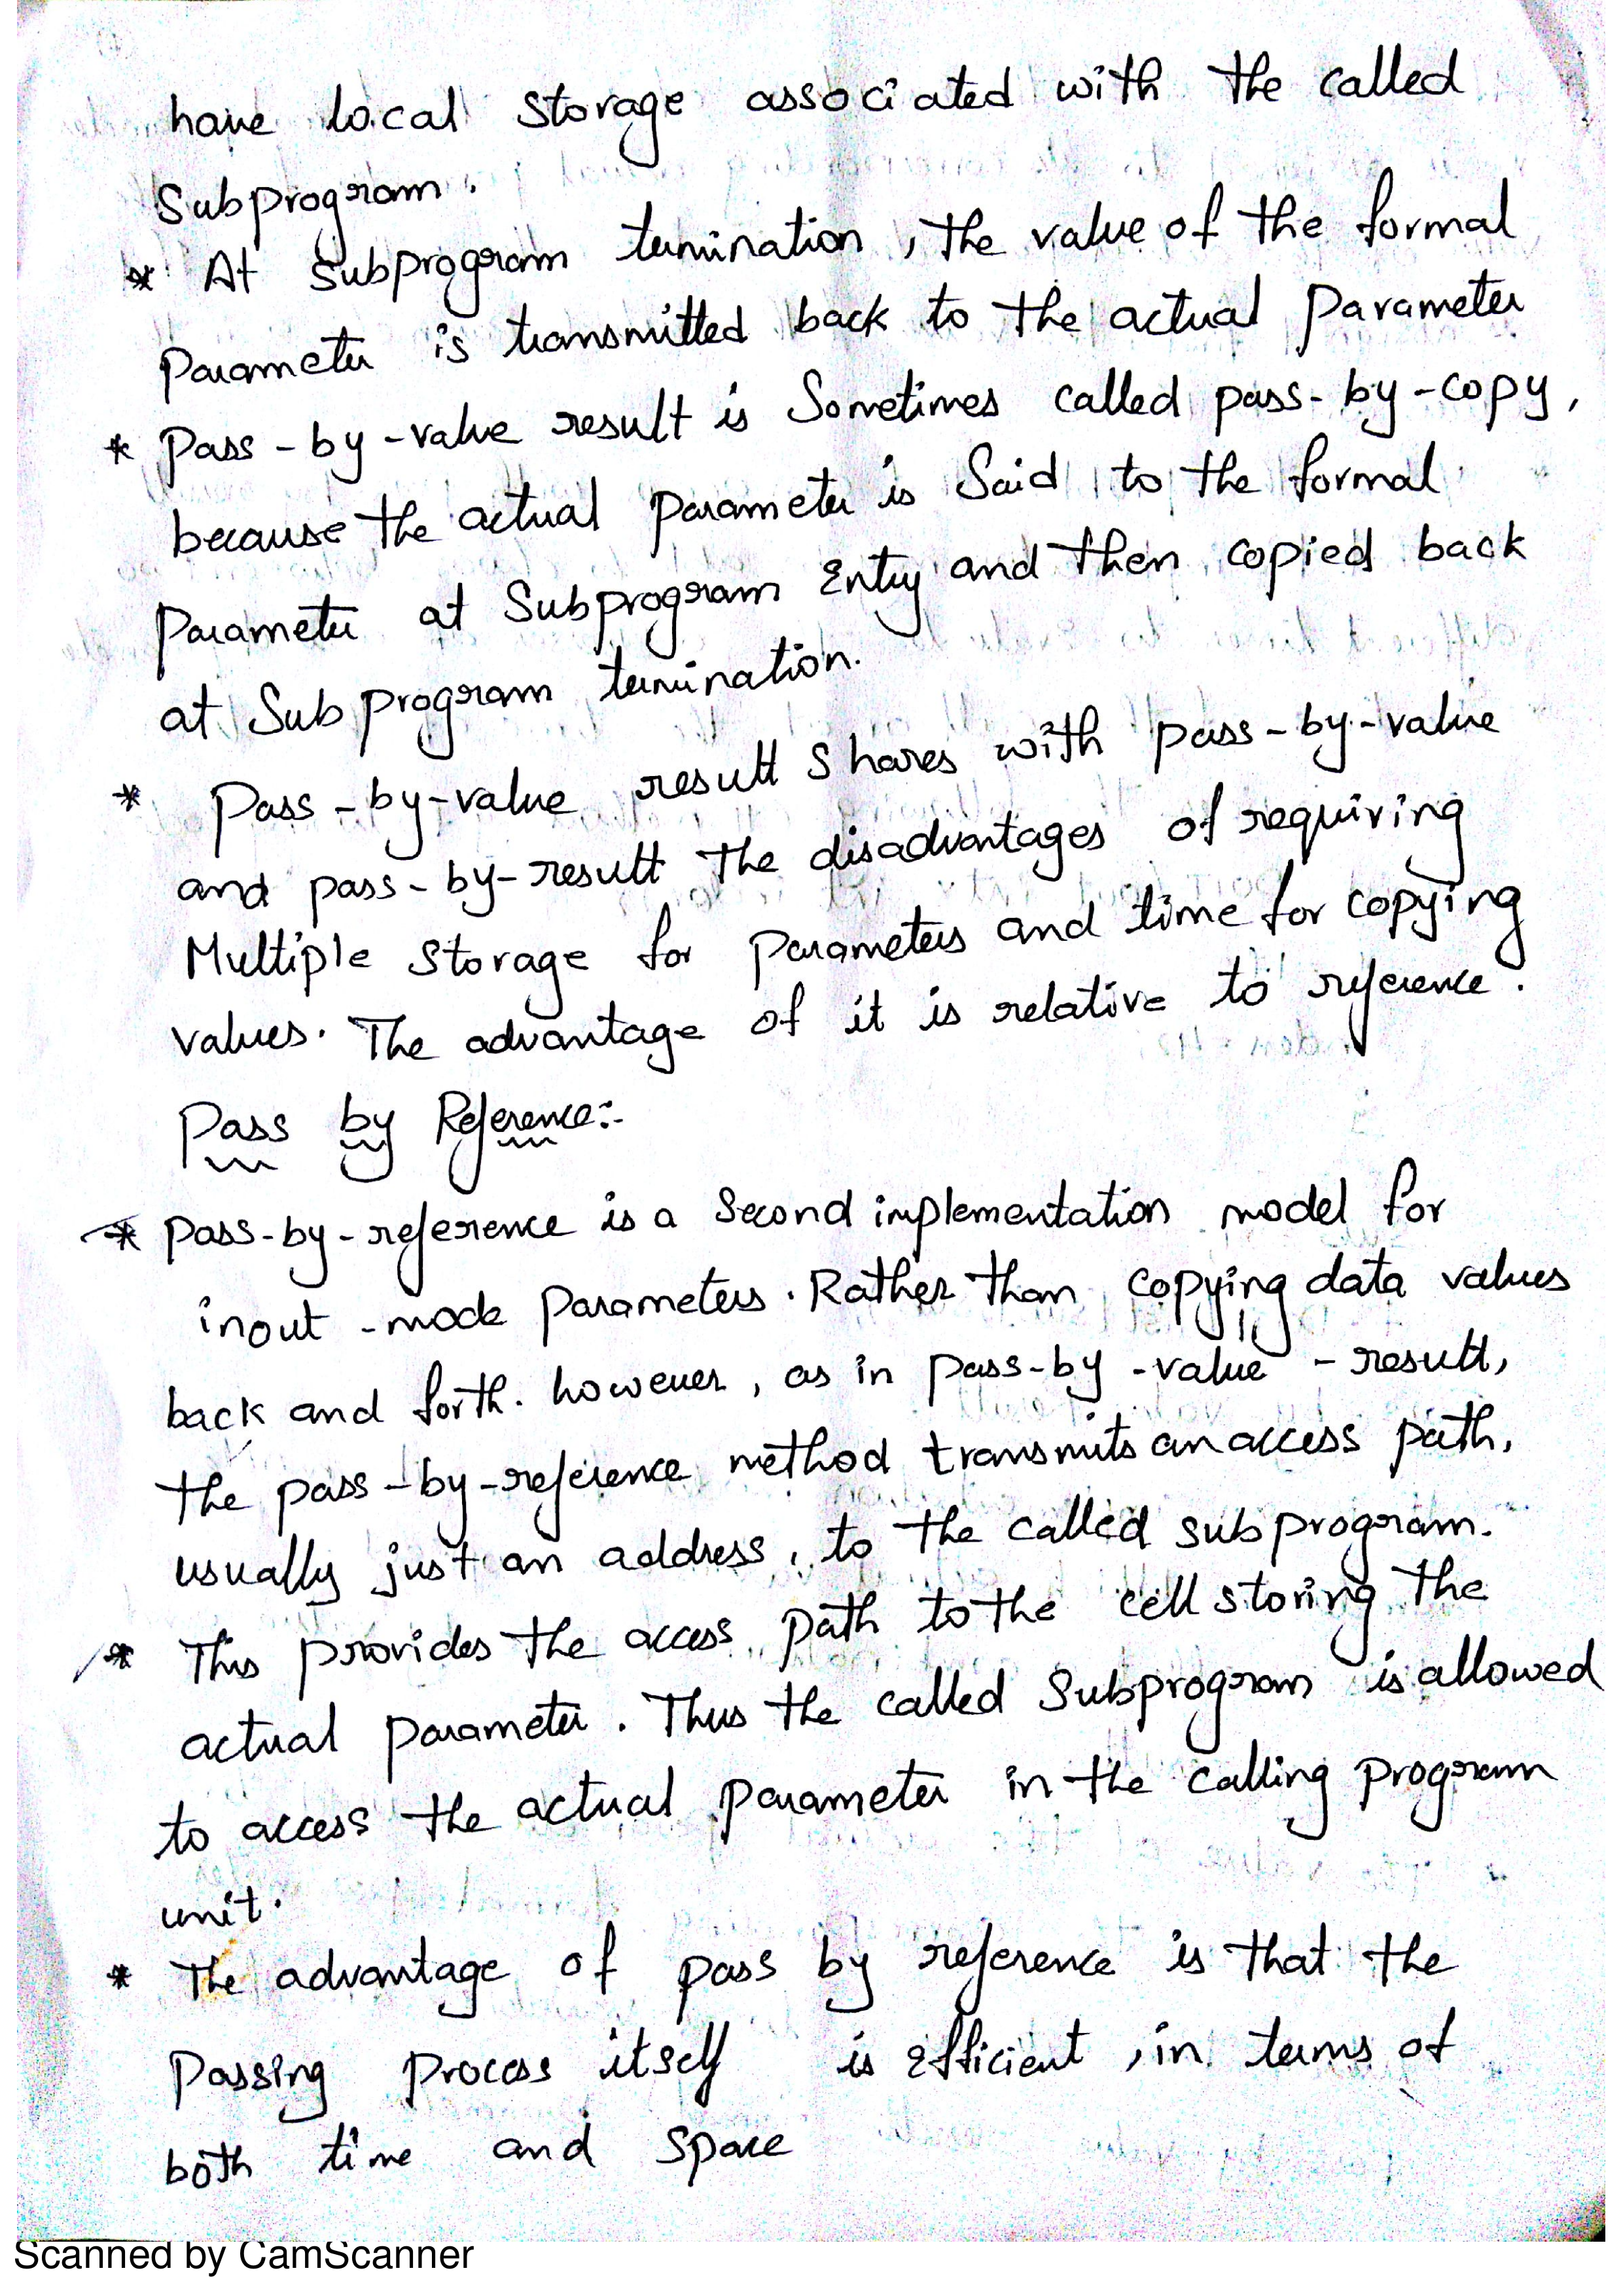 have local storage associated with the called
Subprogram.
* At subprogram termination, the value of the formal
Parameter is transmitted back to the actual parameter
* Pass-by-value result is Sometimes called pass-by-copy,
because the actual parameter is Said to the formal
Parameter at Subprogram Entry and then copied back
at Subprogram termination.
* Pass-by-value result shares with pass-by-value
and pass-by-result the disadvantages of requiring
Multiple storage for parameters and time for copying
values. The advantage of it is relative to reference.
Pass by Reference:-
* pass-by-reference is a second implementation model for
inout-mode parameters. Rather than copying data values
back and forth. however, as in pass-by-value-result,
the pass-by-reference method transmits an access path,
usually just an address, to the called subprogram.
* This provides the access path to the cell storing the
actual parameter. Thus the called subprogram is allowed
to access the actual parameter in the calling program
unit.
* The advantage of pass by reference is that the
Passing process itself is efficient, in terms of
both time and space
Scanned by CamScanner